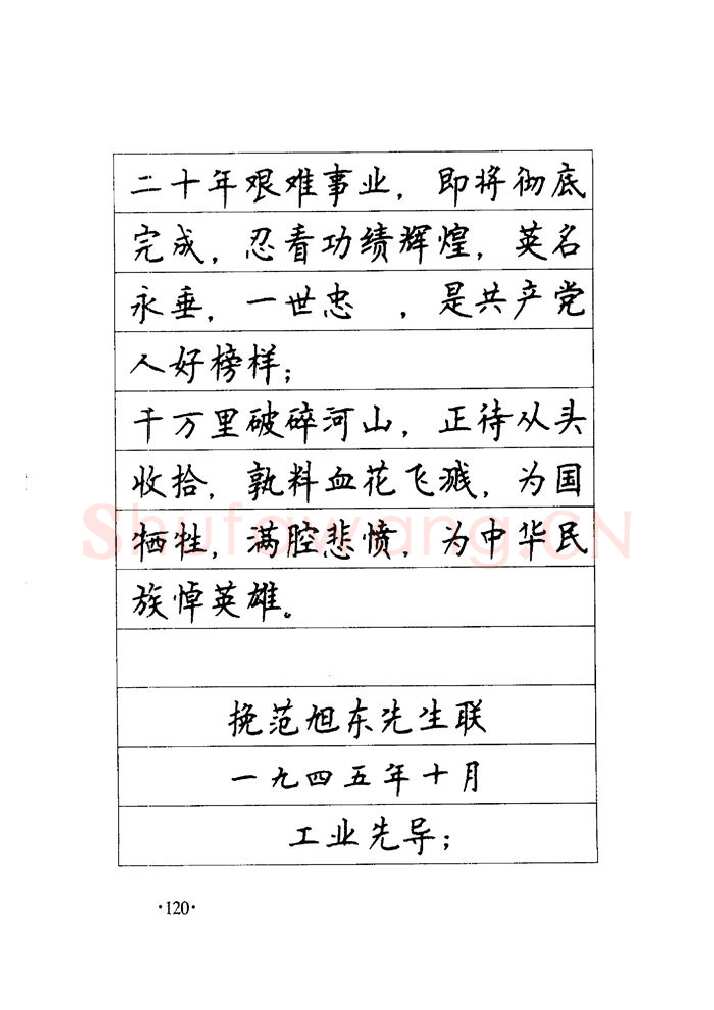 二十年艰难事业，即将彻底
完成，忍看功绩辉煌，英名
永垂，一世忠　，是共产党
人好榜样；
千万里破碎河山，正待从头
收拾，孰料血花飞溅，为国
牺牲，满腔悲愤，为中华民
族悼英雄。
挽范旭东先生联
一九四五年十月
工业先导；
·120·
Shufawang.CN